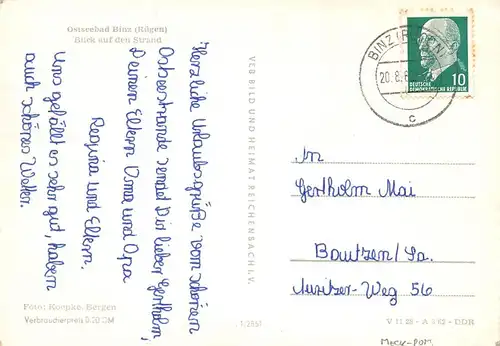 Ostseebad Binz (Rügen)
Blick auf den Strand
Herzliche Urlaubsgrüße vom schönen
Ostseestrande sendet Dir lieber Gertholm,
Deinen Eltern Oma und Opa
Regina und Eltern.
Uns gefällt es sehr gut, haben
auch schönes Wetter.
Foto: Koepke, Bergen
Verbraucherpreis 0,20 DM
VEB BILD UND HEIMAT REICHENBACH I. V.
1/3951
BINZ (RÜGEN)
20.8.6
c
10
DEUTSCHE
DEMOKRATISCHE REPUBLIK
An
Gertholm Mai
Bautzen/Sa.
Auritzer-Weg 56
V 11 28 - A 3 62 - DDR
MECK-POM.